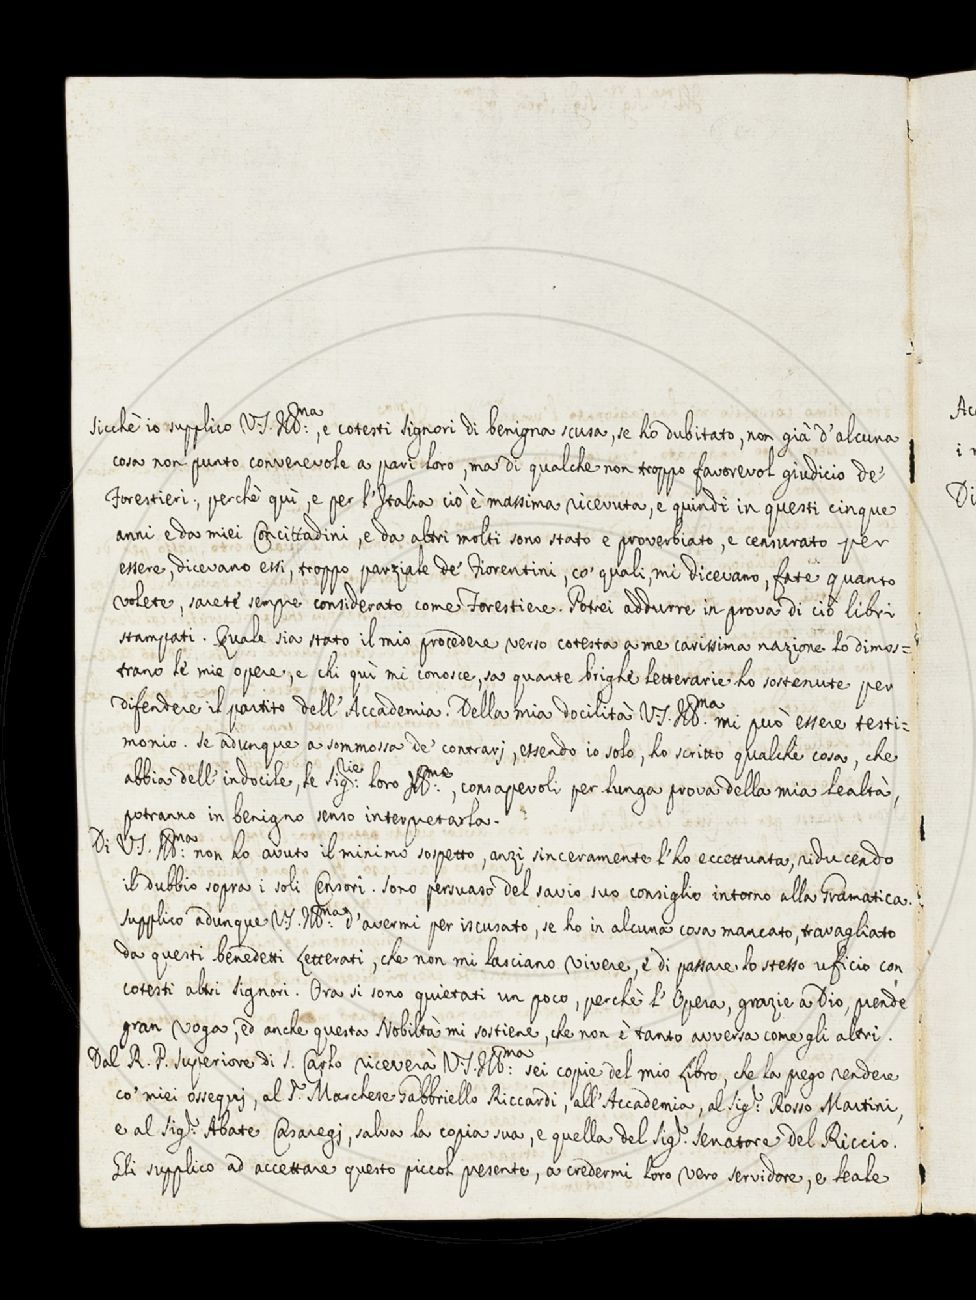 Sicchè io supplico V.S. Ill:ma, e cotesti Signori di benigna scusa, se ho dubitato, non già d'alcuna
cosa non punto convenevole a pari loro, ma di qualche non troppo favorevol giudicio de'
Forestieri, perchè quì, e per l'Italia ciò è massima ricevuta, e quindi in questi cinque
anni e da miei Concittadini, e da altri molti sono stato e proverbiato, e censurato per
essere, dicevano essi, troppo parziale de' Fiorentini, co' quali, mi dicevano, fate quanto
volete, sarete sempre considerato come Forestiere. Potrei addurre in prova di ciò libri
stampati. Quale sia stato il mio procedere verso cotesta a me carissima nazione lo dimos=
trano le mie opere, e chi quì mi conosce, sa quante brighe letterarie ho sostenute per
difendere il partito dell'Accademia. Della mia docilità V.S. Ill:ma mi può essere testi=
monio. Se adunque a sommossa de' contrarj, essendo io solo, ho scritto qualche cosa, che
abbia dell'indocile, le Sig:rie loro Ill:me, consapevoli per lunga prova della mia lealtà,
potranno in benigno senso interpretarla.
Di V.S. Ill:ma non ho avuto il minimo sospetto, anzi sinceramente l'ho eccettuata, riducendo
il dubbio sopra i soli Censori. Sono persuaso del savio suo consiglio intorno alla Gramatica.
Supplico adunque V.S. Ill:ma d'avermi per iscusato, se ho in alcuna cosa mancato, travagliato
da questi benedetti Letterati, che non mi lasciano vivere, e di passare lo stesso uficio con
cotesti altri Signori. Ora si sono quietati un poco, perchè l'Opera, grazie a Dio, prende
gran voga, ed anche questa Nobiltà mi sostiene, che non è tanto avversa come gli altri.
Dal R. P. Superiore di S. Carlo riceverà V.S. Ill:ma sei copie del mio Libro, che la prego rendere
co' miei ossequj, al S.r Marchese Gabbriello Riccardi, all'Accademia, al Sig.r Rosso Martini,
e al Sig.r Abate Casaregj, salva la copia sua, e quella del Sig.r Senatore del Riccio.
Gli supplico ad accettare questo piccol presente, a credermi loro vero servidore, e leale